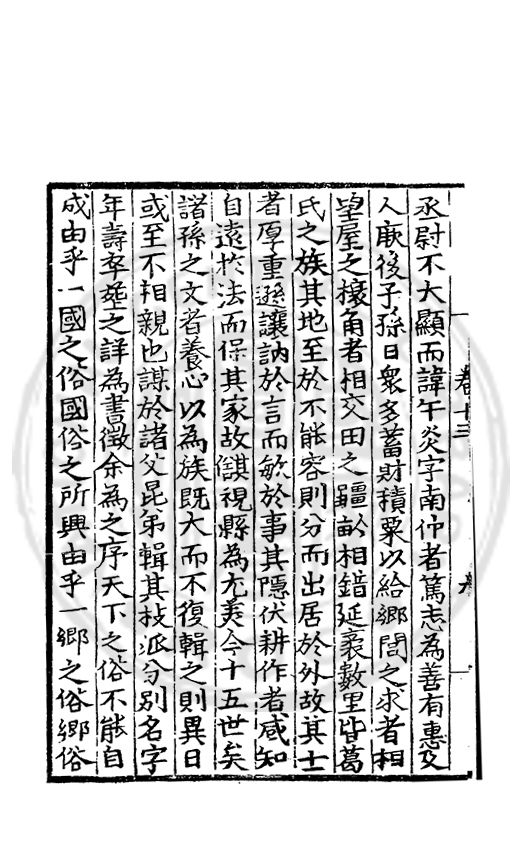 丞尉不大顯而諱午炎字南仲者篤志為善有惠及
人厥後子孫日衆多蓄財積粟以給鄉閭之求者相
望屋之榱角者相交田之疆畝相錯延袤數里皆葛
氏之族其地至於不能容則分而出居於外故其士
者厚重遜讓訥於言而敏於事其隱伏耕作者咸知
自遠扵法而保其家故僙視縣為尤美今十五世矣
諸孫之文者養心以為族既大而不復輯之則異日
或至不相親也謀於諸父昆弟輯其枝派分別名字
年壽卒塟之詳為書徵余為之序天下之俗不能自
成由乎一國之俗國俗之所興由乎一鄉之俗鄉俗
卷十三